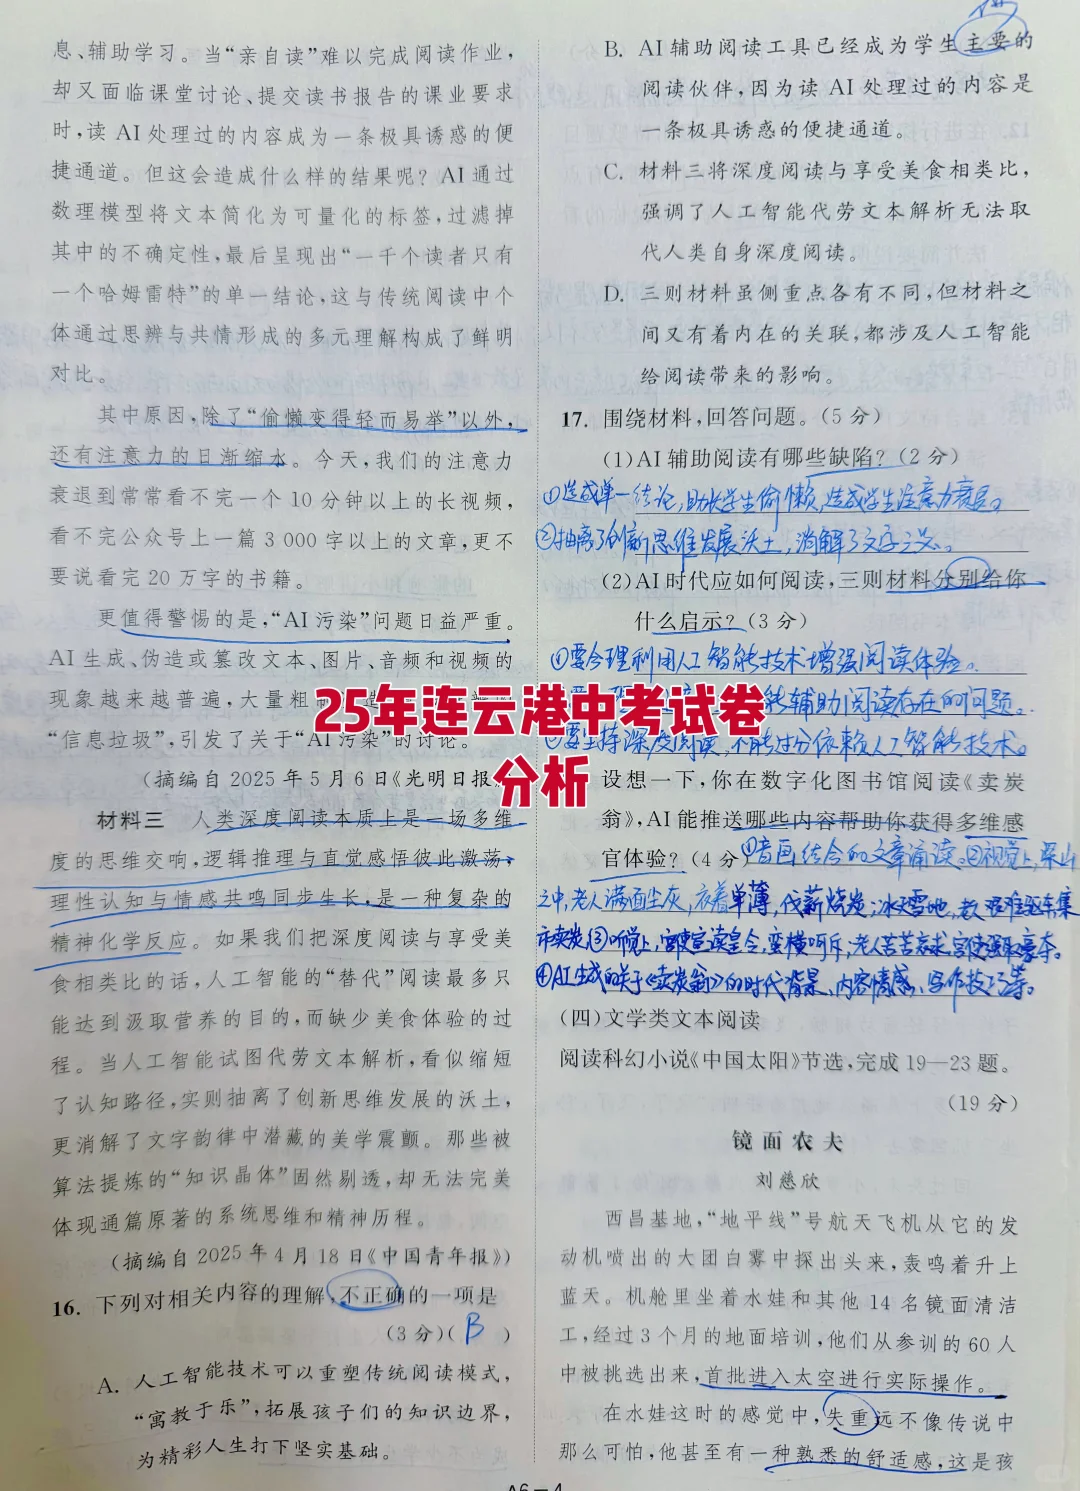 息、辅助学习。当“亲自读”难以完成阅读作业，
却又面临课堂讨论、提交读书报告的课业要求
时，读 AI 处理过的内容成为一条极具诱惑的便
捷通道。但这会造成什么样的结果呢？AI 通过
数理模型将文本简化为可量化的标签，过滤掉
其中的不确定性，最后呈现出“一千个读者只有
一个哈姆雷特”的单一结论，这与传统阅读中个
体通过思辨与共情形成的多元理解构成了鲜明
对比。
其中原因，除了“偷懒变得轻而易举”以外，
还有注意力的日渐缩水。今天，我们的注意力
衰退到常常看不完一个 10 分钟以上的长视频，
看不完公众号上一篇 3 000 字以上的文章，更不
要说看完 20 万字的书籍。
更值得警惕的是，“AI 污染”问题日益严重。
AI 生成、伪造或篡改文本、图片、音频和视频的
现象越来越普遍，大量粗制
“信息垃圾”，引发了关于“AI 污染”的讨论。
（摘编自 2025 年 5 月 6 日《光明日报
材料三 人类深度阅读本质上是一场多维
度的思维交响，逻辑推理与直觉感悟彼此激荡，
理性认知与情感共鸣同步生长，是一种复杂的
精神化学反应。如果我们把深度阅读与享受美
食相类比的话，人工智能的“替代”阅读最多只
能达到汲取营养的目的，而缺少美食体验的过
程。当人工智能试图代劳文本解析，看似缩短
了认知路径，实则抽离了创新思维发展的沃土，
更消解了文字韵律中潜藏的美学震颤。那些被
算法提炼的“知识晶体”固然剔透，却无法完美
体现通篇原著的系统思维和精神历程。
（摘编自 2025 年 4 月 18 日《中国青年报》）
16. 下列对相关内容的理解，不正确的一项是
（3 分）（ B ）
A. 人工智能技术可以重塑传统阅读模式，
“寓教于乐”，拓展孩子们的知识边界，
为精彩人生打下坚实基础。
B. AI 辅助阅读工具已经成为学生主要的
阅读伙伴，因为读 AI 处理过的内容是
一条极具诱惑的便捷通道。
C. 材料三将深度阅读与享受美食相类比，
强调了人工智能代劳文本解析无法取
代人类自身深度阅读。
D. 三则材料虽侧重点各有不同，但材料之
间又有着内在的关联，都涉及人工智能
给阅读带来的影响。
17. 围绕材料，回答问题。（5 分）
（1）AI 辅助阅读有哪些缺陷？（2 分）
①造成单一结论，助长学生偷懒，造成学生注意力衰退。
②抽离了创新思维发展沃土，消解了文字之义。
（2）AI 时代应如何阅读，三则材料分别给你
什么启示？（3 分）
①要合理利用人工智能技术增强阅读体验。
能辅助阅读存在的问题。
③要坚持深度阅读，不能过分依赖人工智能技术。
25年连云港中考试卷
分析
设想一下，你在数字化图书馆阅读《卖炭
翁》，AI 能推送哪些内容帮助你获得多维感
官体验？（4 分）①音画结合的文章诵读。②视觉上，深山
之中，老人满面尘灰，衣着单薄，伐薪烧炭；冰天雪地，老人艰难驱车集
市卖炭。③听觉上，宫使宣读皇令，蛮横呵斥，老人苦苦哀求，宫使强取豪夺。
④AI生成的关于《卖炭翁》的时代背景、内容情感、写作技巧等。
（四）文学类文本阅读
阅读科幻小说《中国太阳》节选，完成 19—23 题。
（19 分）
镜面农夫
刘慈欣
西昌基地，“地平线”号航天飞机从它的发
动机喷出的大团白雾中探出头来，轰鸣着升上
蓝天。机舱里坐着水娃和其他 14 名镜面清洁
工，经过 3 个月的地面培训，他们从参训的 60 人
中被挑选出来，首批进入太空进行实际操作。
在水娃这时的感觉中，失重远不像传说中
那么可怕，他甚至有一种熟悉的舒适感，这是孩
A6－4